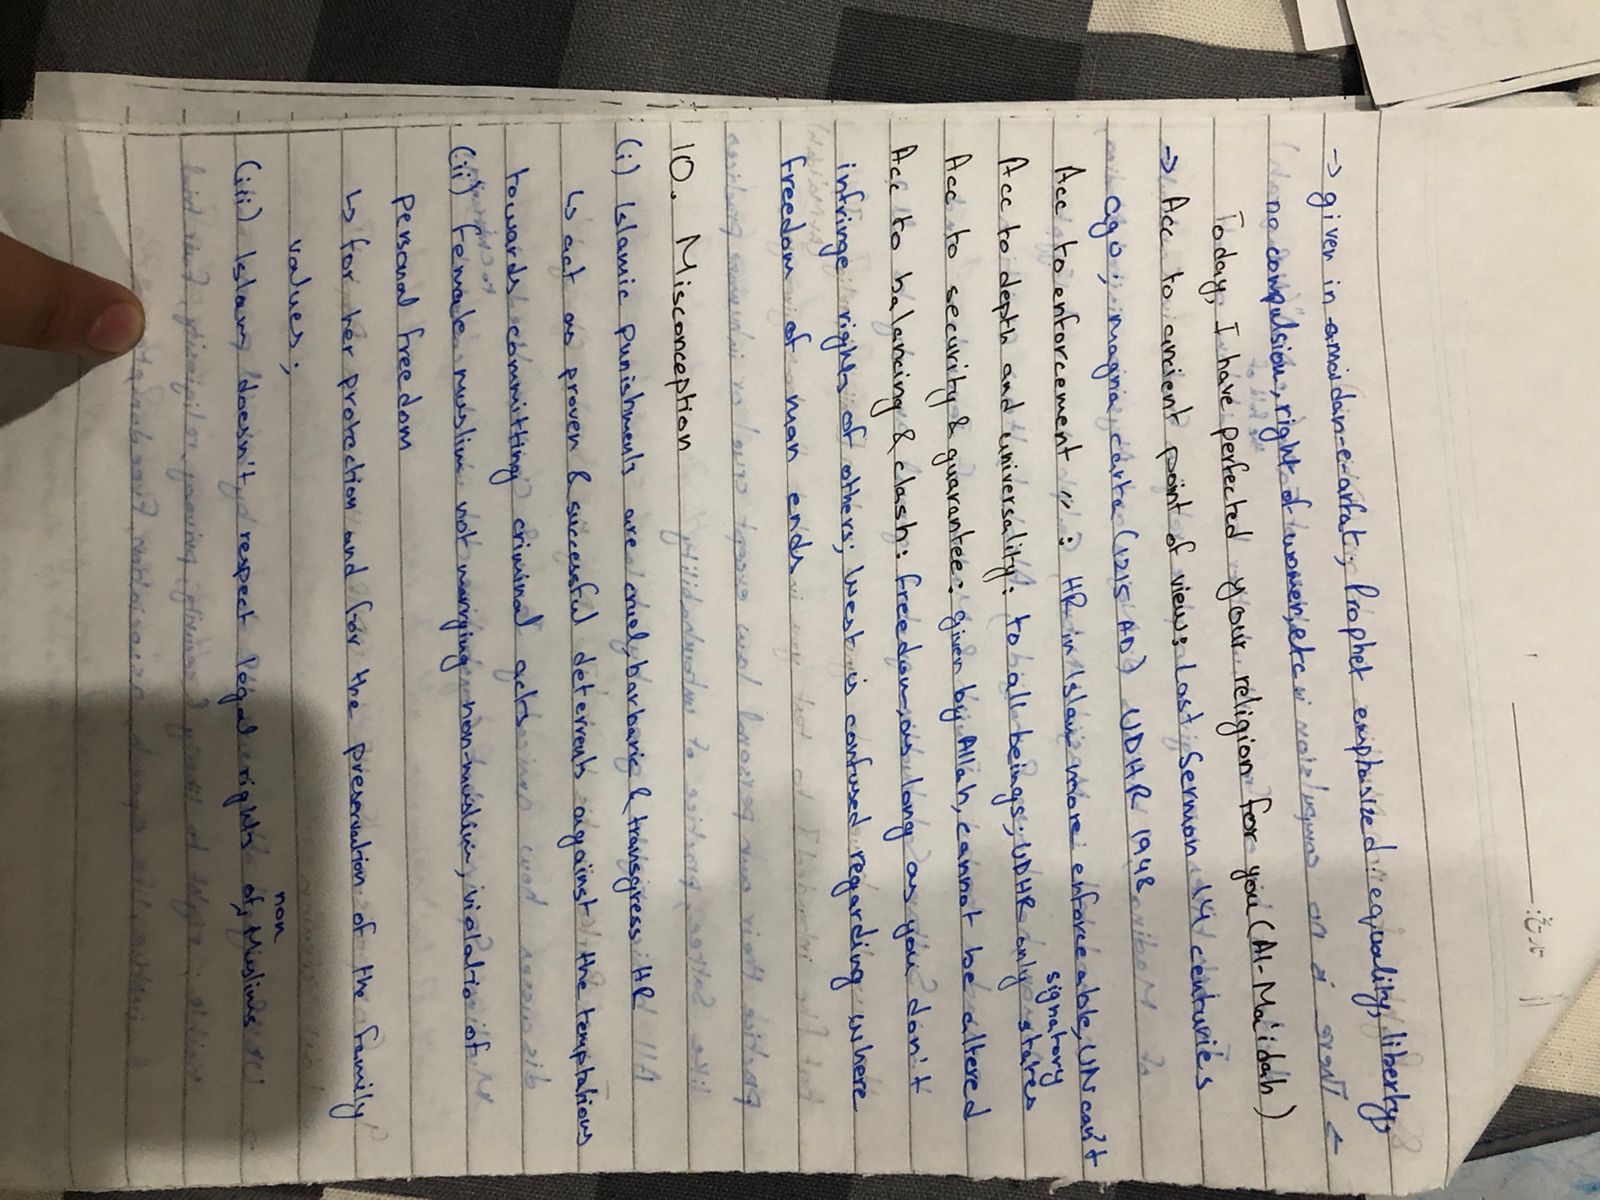 تاریخ:
-> given in maidan-e-arfat; Prophet emphasized: equality, liberty,
no compulsion, right of women, etc
Today, I have perfected your religion for you (Al-Maidah)
-> Acc to ancient point of view: Last Sermon 14 centuries
ago, magna carta (1215 AD) UDHR 1948
Acc to enforcement: HR in Islam more enforceable, UN can't
Acc to depth and universality: to all beings, UDHR only signatory states
Acc to security & guarantee: given by Allah, cannot be altered
Acc to balancing & clash: freedom, as long as you don't
infringe rights of others; West is confused regarding where
freedom of man ends
10. Misconception
(i) Islamic punishments are cruel, barbaric & transgress HR
↳ act as proven & successful deterrents against the temptations
towards committing criminal acts
(ii) female muslim not marrying non-muslim, violation of
personal freedom
↳ for her protection and for the preservation of the family
values;
(iii) Islam doesn't respect legal rights of non Muslims